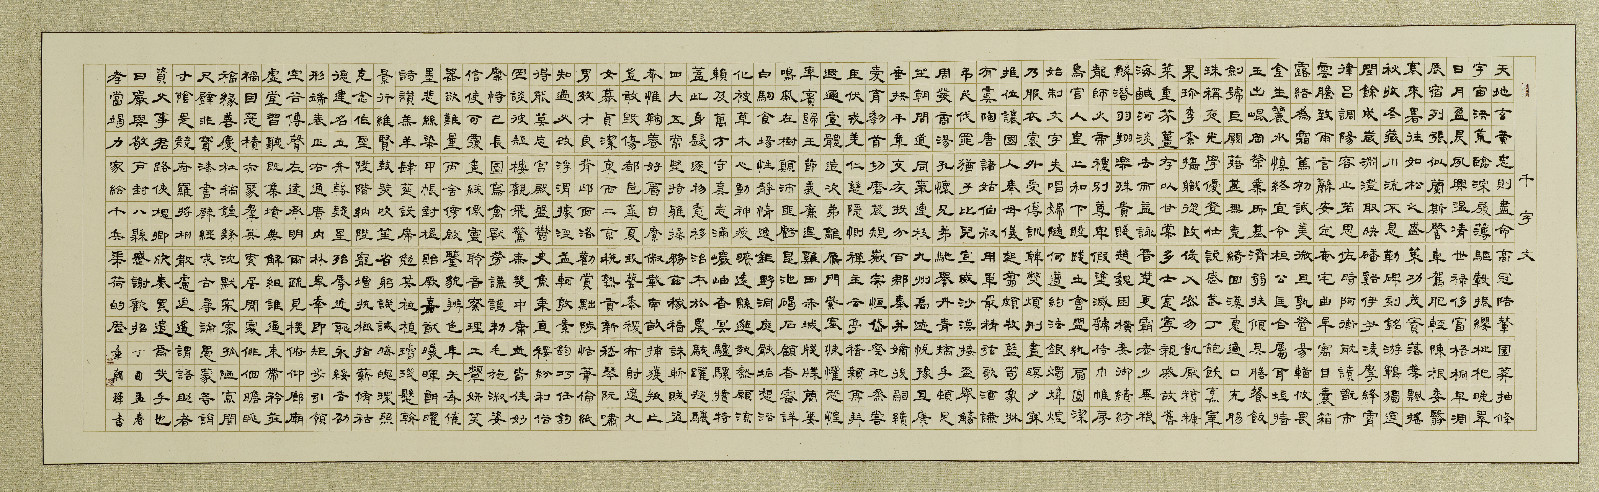 千字文
天地玄黃
宇宙洪荒
日月盈昃
辰宿列張
寒來暑往
秋收冬藏
閏餘成歲
律呂調陽
雲騰致雨
露結為霜
金生麗水
玉出崑岡
劍號巨闕
珠稱夜光
果珍李柰
菜重芥薑
海鹹河淡
鱗潛羽翔
龍師火帝
鳥官人皇
始制文字
乃服衣裳
推位讓國
有虞陶唐
弔民伐罪
周發商湯
坐朝問道
垂拱平章
愛育黎首
臣伏戎羌
遐邇壹體
率賓歸王
鳴鳳在樹
白駒食場
化被草木
賴及萬方
蓋此身髮
四大五常
恭惟鞠養
豈敢毀傷
女慕貞潔
男效才良
知過必改
得能莫忘
罔談彼短
靡恃己長
信使可覆
器欲難量
墨悲絲染
詩讚羔羊
景行維賢
克念作聖
德建名立
形端表正
空谷傳聲
虛堂習聽
禍因惡積
福緣善慶
尺璧非寶
寸陰是競
資父事君
曰嚴與敬
孝當竭力
忠則盡命
臨深履薄
夙興溫凊
似蘭斯馨
如松之盛
川流不息
淵澄取映
容止若思
言辭安定
篤初誠美
慎終宜令
榮業所基
籍甚無竟
學優登仕
攝職從政
存以甘棠
去而益詠
樂殊貴賤
禮別尊卑
上和下睦
夫唱婦隨
外受傅訓
入奉母儀
諸姑伯叔
猶子比兒
孔懷兄弟
同氣連枝
交友投分
切磨箴規
仁慈隱惻
造次弗離
節義廉退
顛沛匪虧
性靜情逸
心動神疲
守真志滿
逐物意移
堅持雅操
好爵自縻
都邑華夏
東西二京
背邙面洛
浮渭據涇
宮殿盤鬱
樓觀飛驚
圖寫禽獸
畫綵仙靈
丙舍傍啟
甲帳對楹
肆筵設席
鼓瑟吹笙
陞階納陛
弁轉疑星
右通廣內
左達承明
既集墳典
亦聚群英
杜稿鍾隸
漆書壁經
府羅將相
路俠槐卿
戶封八縣
家給千兵
高冠陪輦
驅轂振纓
世祿侈富
車駕肥輕
策功茂實
勒碑刻銘
磻溪伊尹
佐時阿衡
奄宅曲阜
微旦孰營
桓公匡合
濟弱扶傾
綺迴漢惠
說感武丁
俊乂密勿
多士寔寧
晉楚更霸
趙魏困橫
假途滅虢
踐土會盟
何遵約法
韓弊煩刑
起翦頗牧
用軍最精
宣威沙漠
馳譽丹青
九州禹跡
百郡秦并
嶽宗恆岱
禪主云亭
雁門紫塞
雞田赤城
昆池碣石
鉅野洞庭
曠遠綿邈
巖岫杳冥
治本於農
務茲稼穡
俶載南畝
我藝黍稷
稅熟貢新
勸賞黜陟
孟軻敦素
史魚秉直
庶幾中庸
勞謙謹敕
聆音察理
鑒貌辨色
貽厥嘉猷
勉其祗植
省躬譏誡
寵增抗極
殆辱近恥
林皋幸即
兩疏見機
解組誰逼
索居閑處
沉默寂寥
求古尋論
散慮逍遙
欣奏累遣
慼謝歡招
渠荷的歷
園莽抽條
枇杷晚翠
梧桐早凋
陳根委翳
落葉飄搖
遊鵾獨運
凌摩絳霄
耽讀翫市
寓目囊箱
易輶攸畏
屬耳垣牆
具膳餐飯
適口充腸
飽飫烹宰
飢厭糟糠
親戚故舊
老少異糧
妾御績紡
侍巾帷房
紈扇圓潔
銀燭煒煌
晝眠夕寐
藍筍象床
弦歌酒讌
接杯舉觴
矯手頓足
悅豫且康
嫡後嗣續
祭祀蒸嘗
稽顙再拜
悚懼恐惶
牋牒簡要
顧答審詳
骸垢想浴
執熱願涼
驢騾犢特
駭躍超驤
誅斬賊盜
捕獲叛亡
布射遼丸
嵇琴阮嘯
恬筆倫紙
鈞巧任釣
釋紛利俗
並皆佳妙
毛施淑姿
工顰妍笑
年矢每催
曦暉朗曜
璇璣懸斡
晦魄環照
指薪修祜
永綏吉劭
矩步引領
俯仰廊廟
束帶矜莊
徘徊瞻眺
孤陋寡聞
愚蒙等誚
謂語助者
焉哉乎也
丁酉孟春